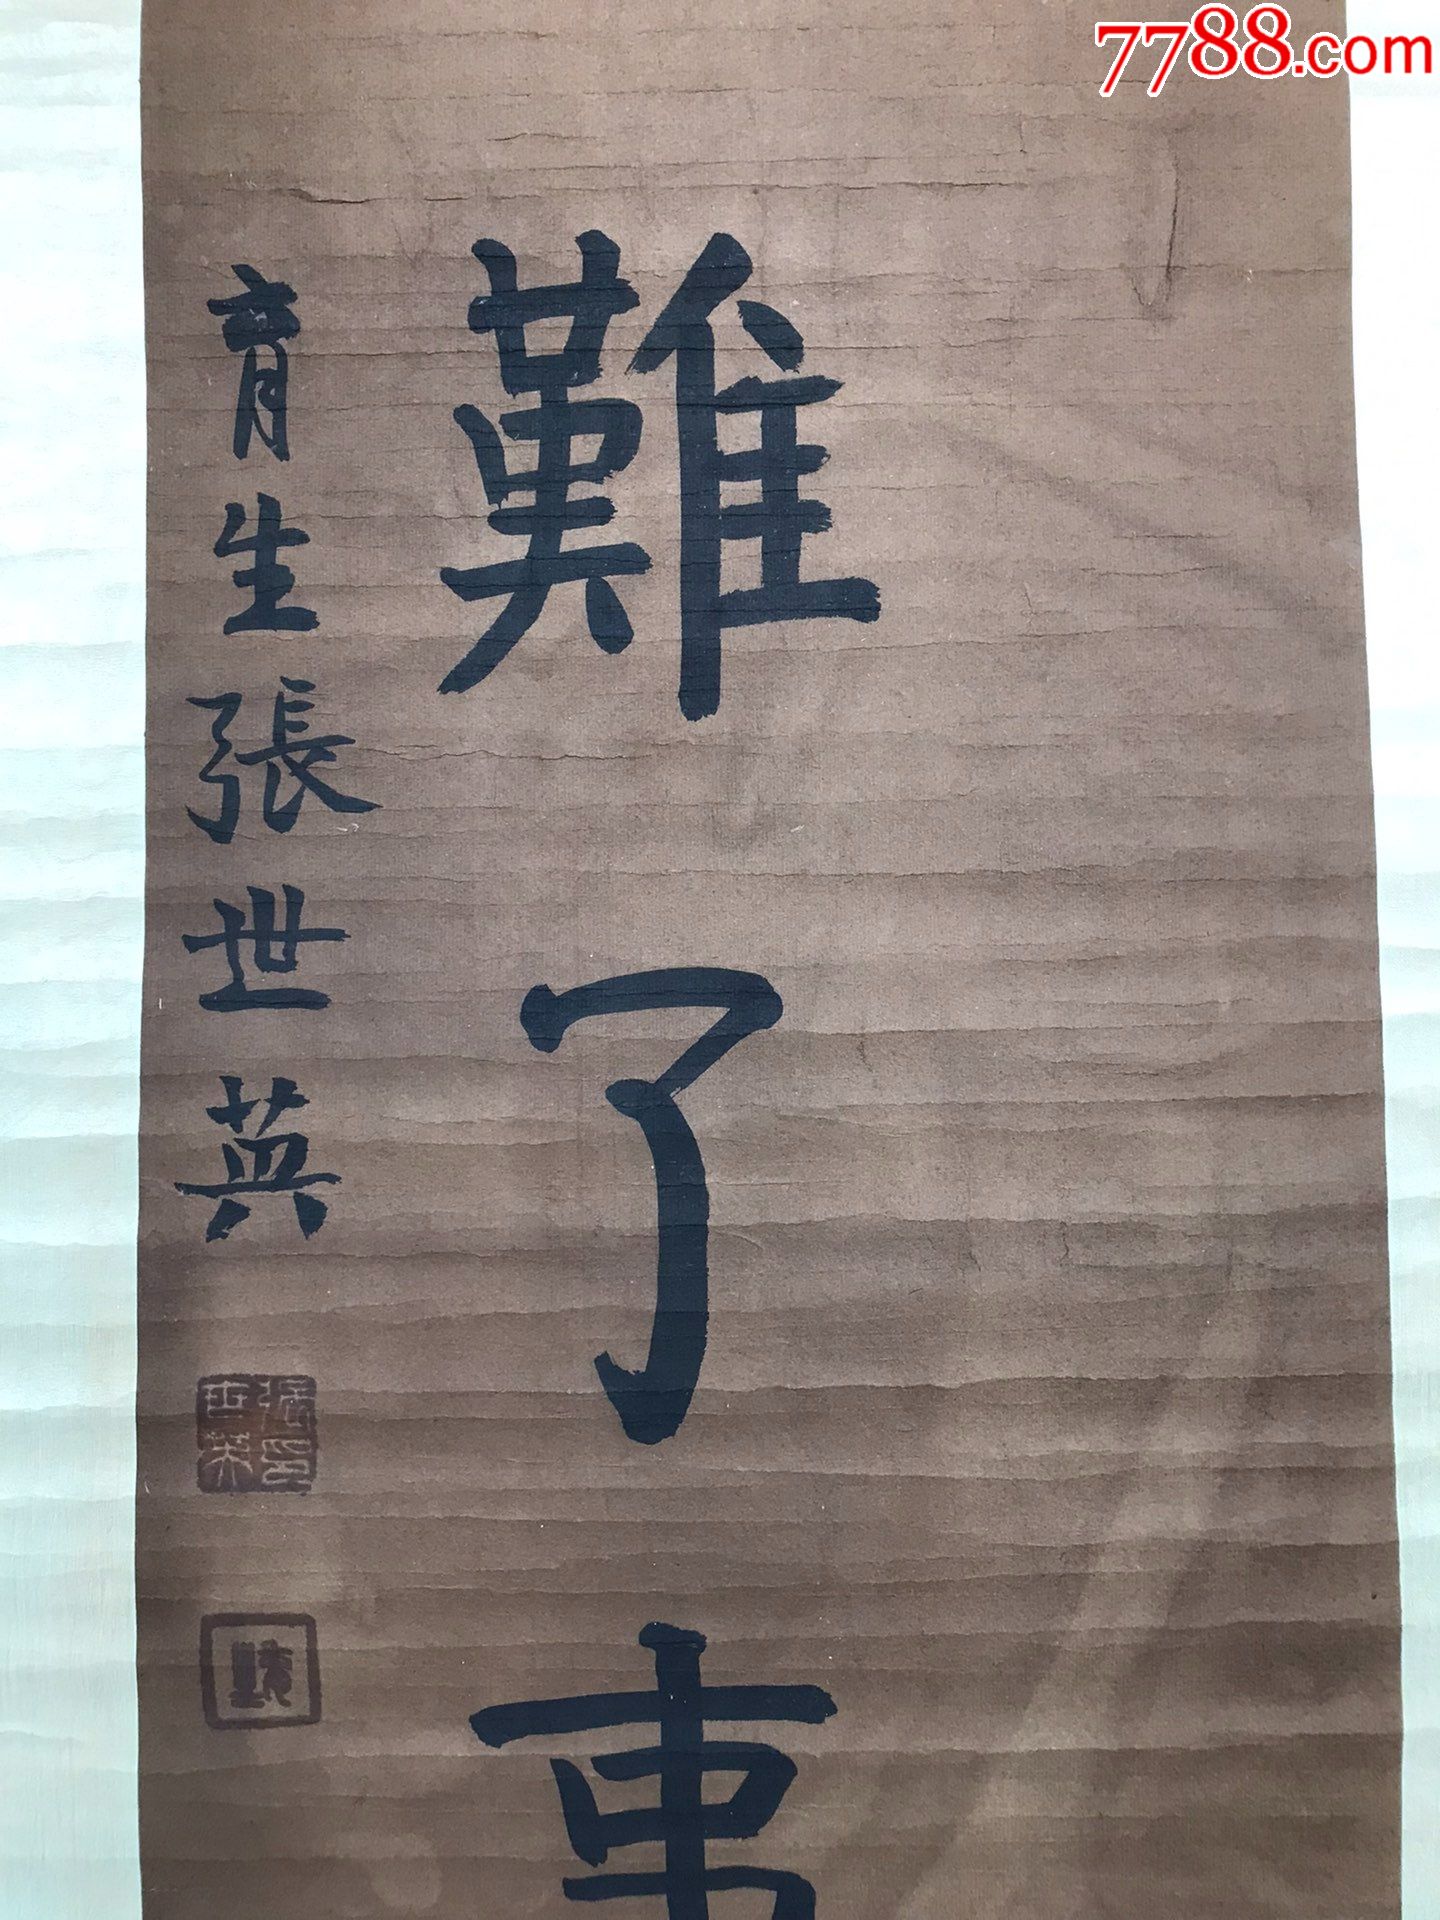 7788.com
難了事
育生張世英
張世英印